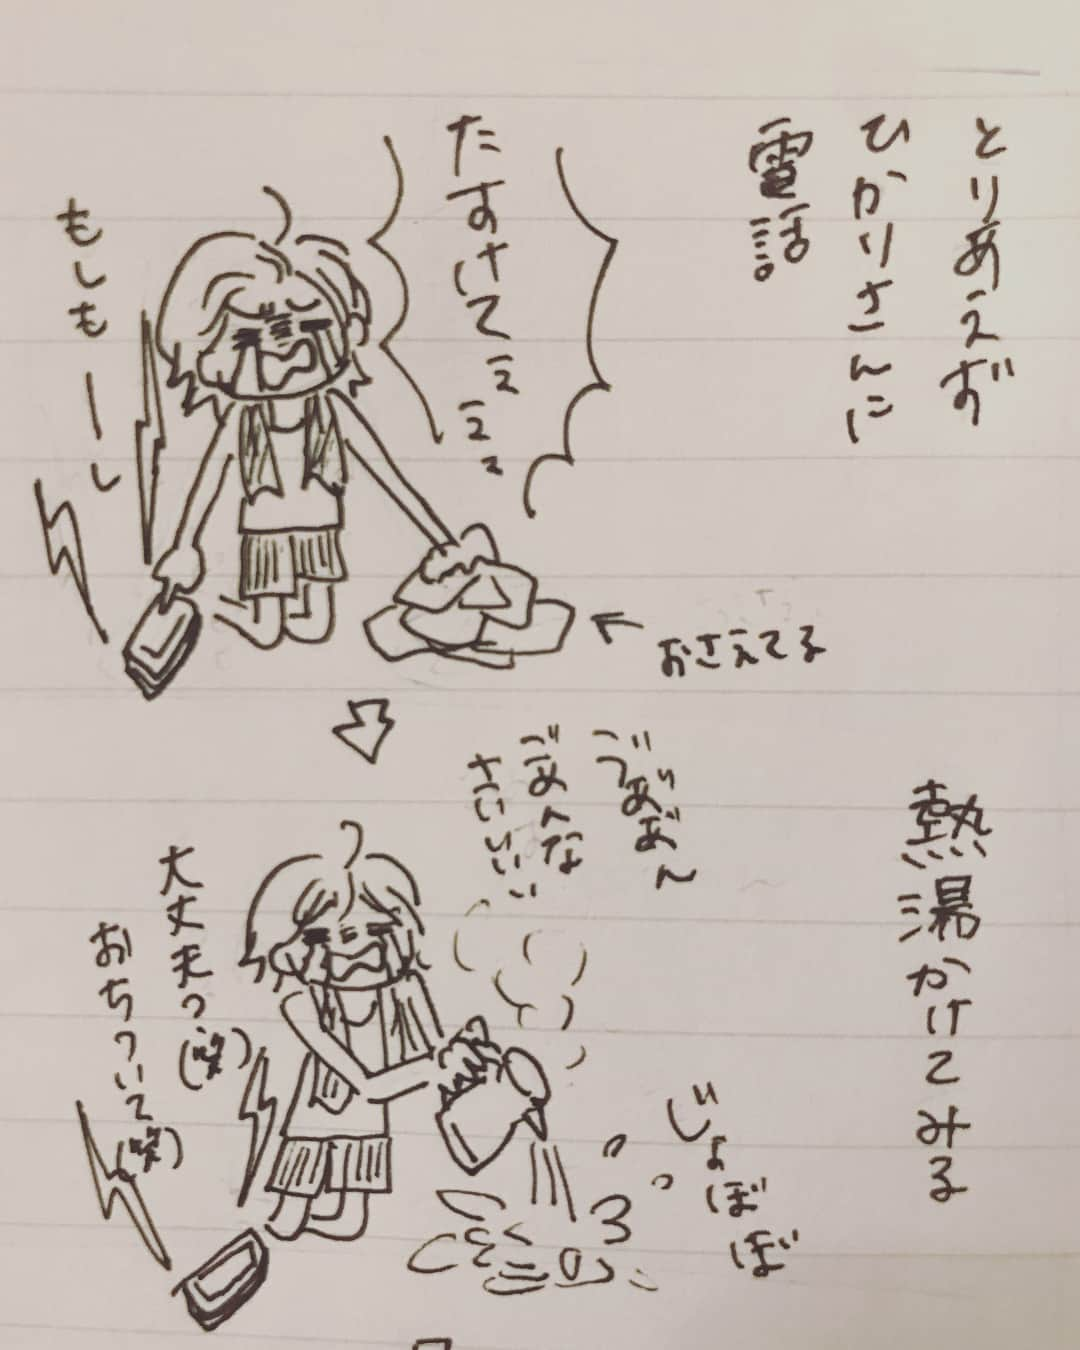 とりあえず
ひかりさんに
電話
たすけてぇぇぇ
もしもーし
おさえてる
熱湯かけてみる
ごめんな
さいぃぃぃ
大丈夫?(笑)
おちついて(笑)
じょぼぼ